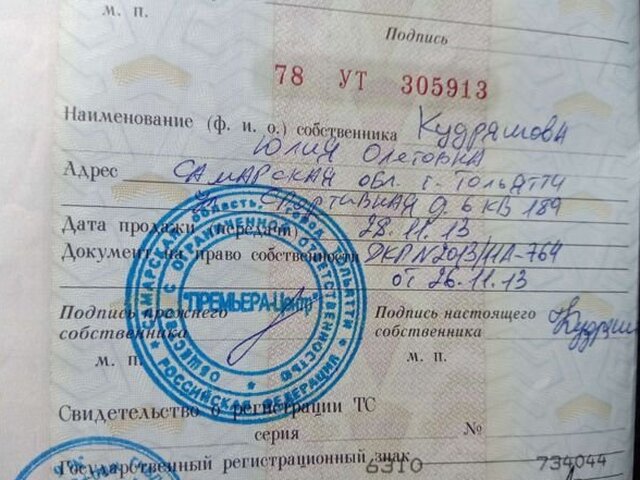 м. п.
Подпись
78 УТ 305913
Наименование (ф. и. о.) собственника Кудряшова
Юлия Олеговна
Адрес Самарская обл. г. Тольятти
Спортивная д. 6 кв 189
Дата продажи (передачи) 28.11.13
Документ на право собственности ДКП №2013/11А-764
от 26.11.13
Подпись прежнего собственника
Подпись настоящего собственника
м. п.
м. п.
САМАРСКАЯ ОБЛАСТЬ ГОРОД ТОЛЬЯТТИ
РОССИЙСКАЯ ФЕДЕРАЦИЯ
ОБЩЕСТВО С ОГРАНИЧЕННОЙ ОТВЕТСТВЕННОСТЬЮ
"ПРЕМЬЕРА-Центр"
Свидетельство о регистрации ТС
серия №
Государственный регистрационный знак
63ТО 734044